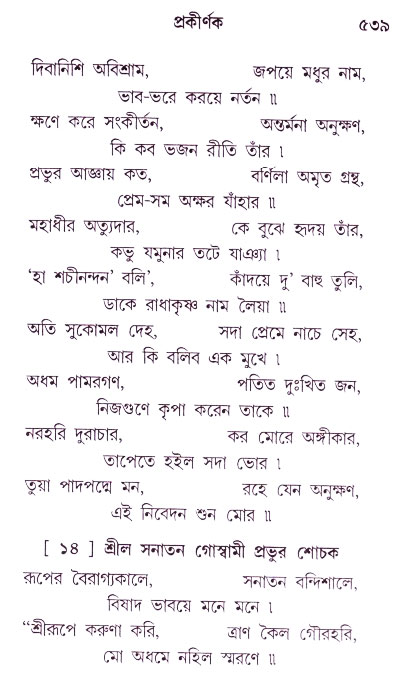 প্রকীর্ণক ৫৩৯
দিবানিশি অবিশ্রাম, জপয়ে মধুর নাম,
ভাব-ভরে করয়ে নর্তন ॥
ক্ষণে করে সংকীর্তন, অন্তর্মনা অনুক্ষণ,
কি কব ভজন রীতি তাঁর ।
প্রভুর আজ্ঞায় কত, বর্ণিলা অমৃত গ্রন্থ,
প্রেম-সম অক্ষর যাঁহার ॥
মহাধীর অত্যুদার, কে বুঝে হৃদয় তাঁর,
কভু যমুনার তটে যাঞা ।
‘হা শচীনন্দন’ বলি’, কাঁদয়ে দু’ বাহু তুলি,
ডাকে রাধাকৃষ্ণ নাম লৈয়া ॥
অতি সুকোমল দেহ, সদা প্রেমে নাচে সেহ,
আর কি বলিব এক মুখে ।
অধম পামরগণ, পতিত দুঃখিত জন,
নিজগুণে কৃপা করেন তাকে ॥
নরহরি দুরাচার, কর মোরে অঙ্গীকার,
তাপেতে হইল সদা ভোর ।
তুয়া পাদপদ্মে মন, রহে যেন অনুক্ষণ,
এই নিবেদন শুন মোর ॥
[ ১৪ ] শ্রীল সনাতন গোস্বামী প্রভুর শোচক
রূপের বৈরাগ্যকালে, সনাতন বন্দিশালে,
বিষাদ ভাবয়ে মনে মনে ।
“শ্রীরূপে করুণা করি, ত্রাণ কৈল গৌরহরি,
মো অধমে নহিল স্মরণে ॥